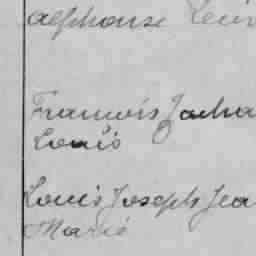 Alphonse Leon
Francois Zacha
Louis
Louis Joseph Jea
Marie